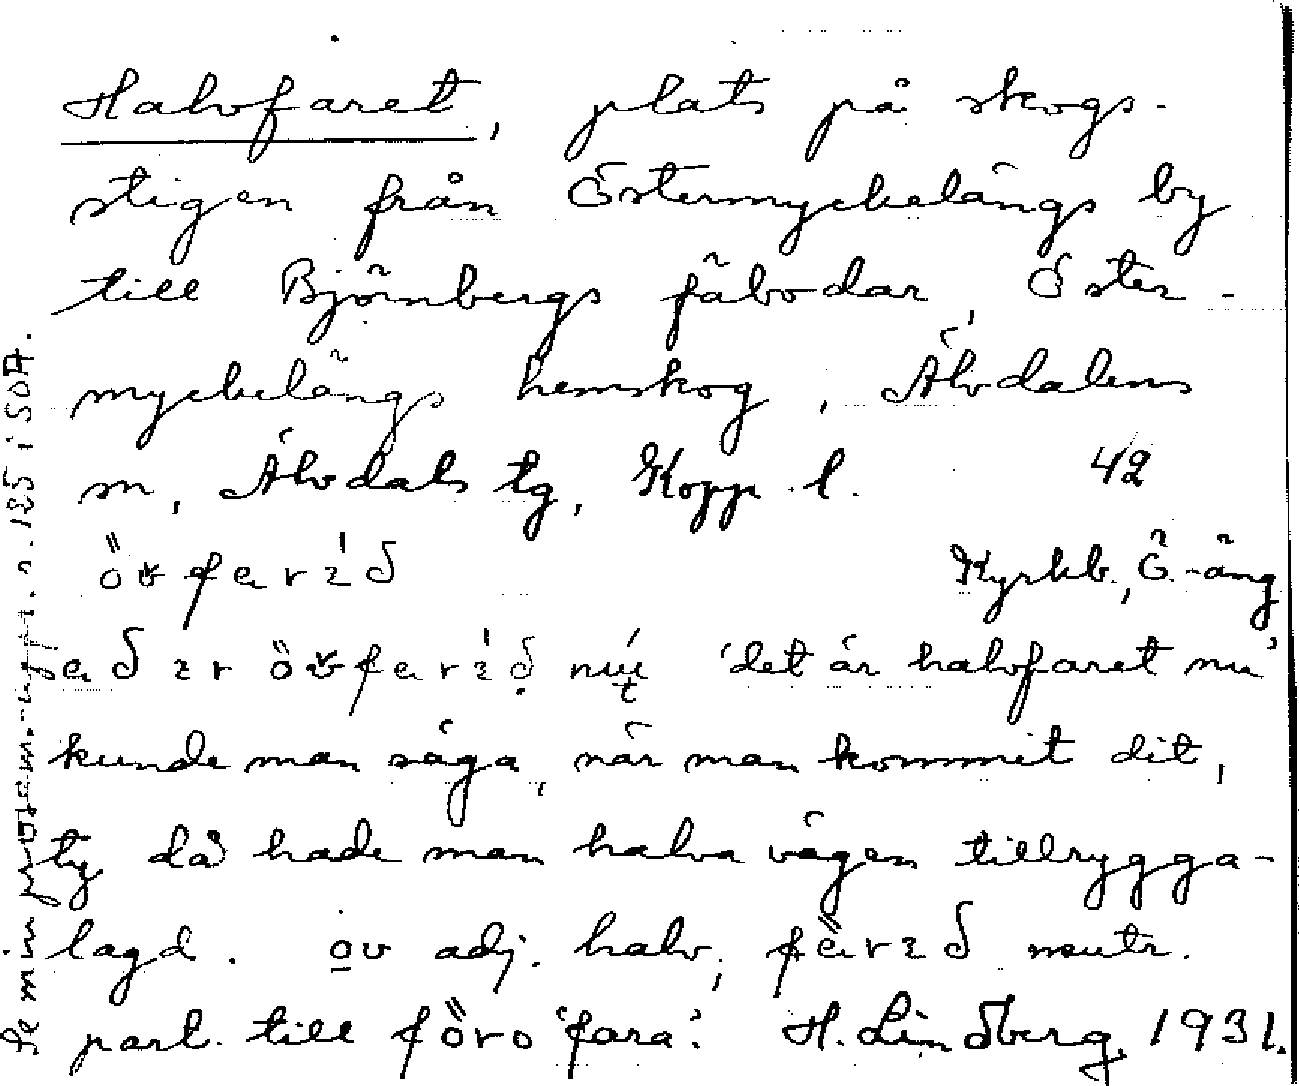 Halvfaret, plats på skogs-
stigen från Östermyckelängs by
till Björnbergs fäbodar, Öster-
myckelängs hemskog, Älvdalens
m, Älvdals tg, Kopp. l. 42
Kyrkb., Ö.-äng
'det är halvfaret nu'
kunde man säga, när man kommit dit,
ty då hade man halva vägen tillrygga-
lagd. ov adj. halv, neutr.
part. till föro 'fara'. H. Lindberg 1931.
Se min n. 185 i SOA.